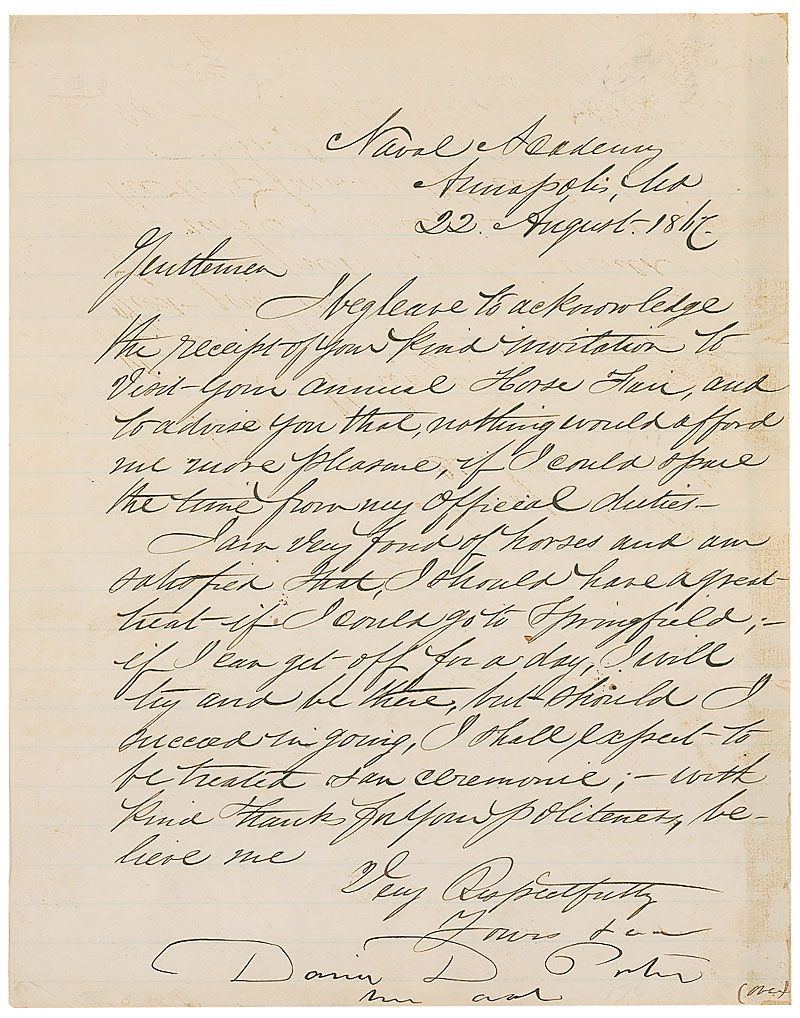 Naval Academy
Annapolis, Md
22. August. 1867.
Gentlemen
I beg leave to acknowledge
the receipt of your kind invitation to
visit your annual Horse Fair, and
to advise you that, nothing would afford
me more pleasure, if I could spare
the time from my official duties.—
I am very fond of horses and am
satisfied that, I should have a great
treat if I could go to Springfield;—
if I can get off for a day, I will
try and be there, but should I
succeed in going, I shall expect to
be treated san ceremonie;— with
kind thanks for your politeness, be-
lieve me
Very Respectfully
Yours
David D Porter
(over)